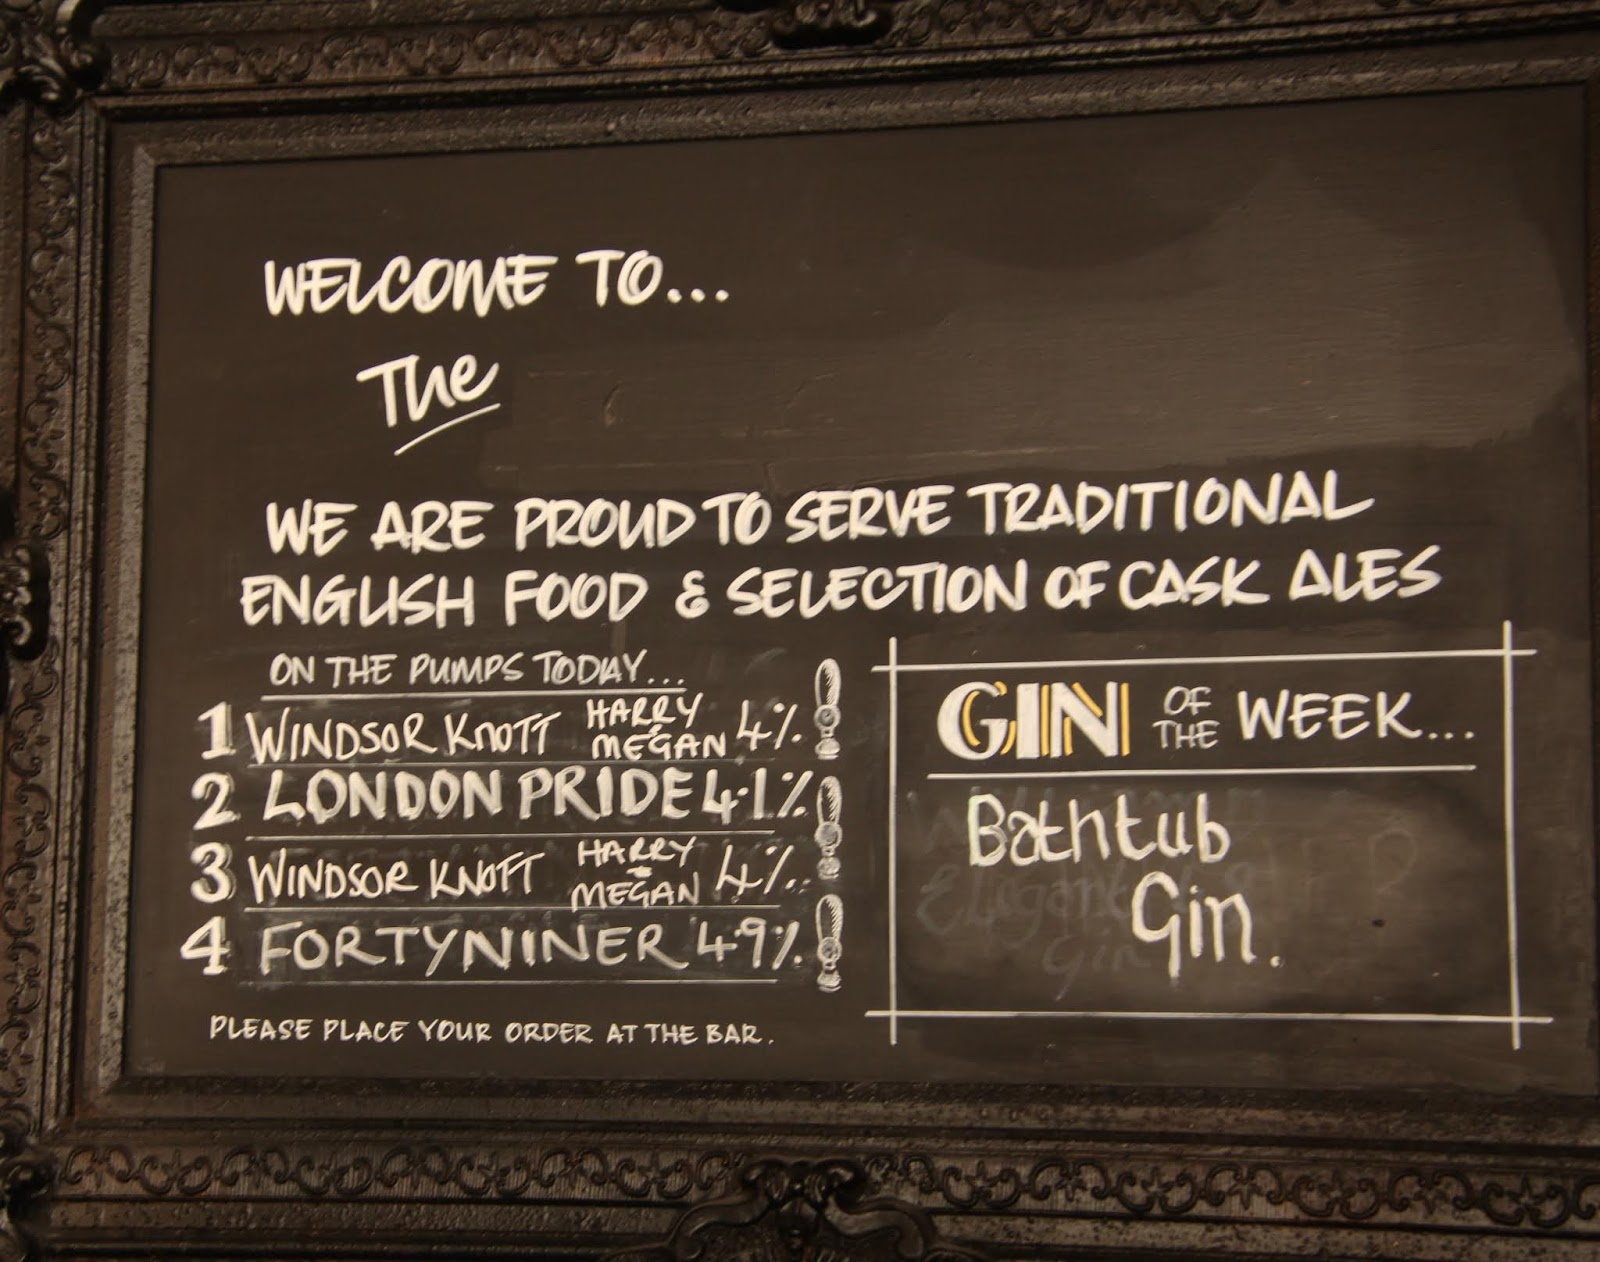 WELCOME TO...
The
WE ARE PROUD TO SERVE TRADITIONAL
ENGLISH FOOD & SELECTION OF CASK ALES
ON THE PUMPS TODAY...
1 WINDSOR KNOTT HARRY + MEGAN 4%
2 LONDON PRIDE 4.1%
3 WINDSOR KNOTT HARRY + MEGAN 4%
4 FORTYNINER 4.9%
PLEASE PLACE YOUR ORDER AT THE BAR.
GIN OF THE WEEK...
Bathtub
Gin.